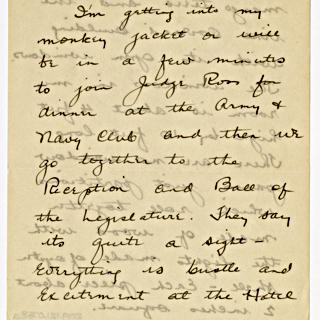 I'm getting into my
monkey jacket or will
be in a few minutes
to join Judge Ross for
dinner at the Army &
Navy Club and then we
go together to the
Reception and Ball of
the Legislature. They say
its quite a sight –
Everything is bustle and
Excitement at the Hotel